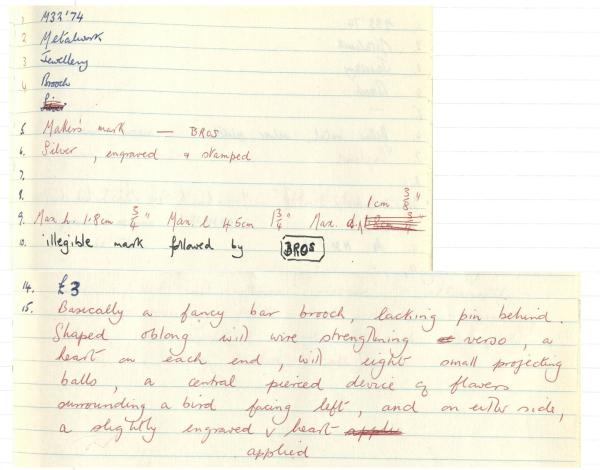 1 M33'74
2 Metalwork
3 Jewellery
4 Brooch
5 Maker's mark — BROS
6. Silver, engraved & stamped
7.
8.
1 cm 3/8"
9. Max h. 1.8cm 3/4" Max. l 4.5cm 1 3/4" Max. d.
10. illegible mark followed by BROS
14. £3
15. Basically a fancy bar brooch, lacking pin behind.
Shaped oblong with wire strengthning verso, a
heart on each end, with eight small projecting
balls, a central pierced device of flowers
surrounding a bird facing left, and on either side,
a slightly engraved v heart
applied